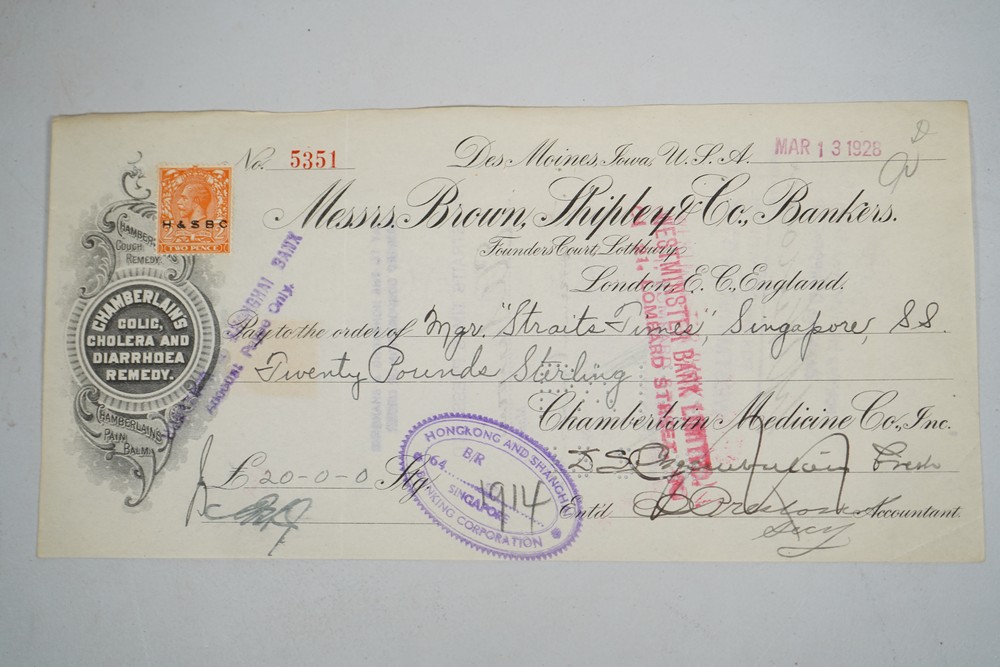 No. 5351
Des Moines, Iowa, U.S.A. MAR 13 1928
Messrs. Brown, Shipley & Co., Bankers.
Founders Court, Lothbury,
London, E.C., England.
Pay to the order of Mgr. "Straits Times", Singapore, S.S.
Twenty Pounds Sterling
Chamberlain Medicine Co., Inc.
£ 20-0-0 Stg.
Ent'd Accountant.
Secy
H & S B C
TWO PENCE
CHAMBERLAIN'S
COUGH
REMEDY
CHAMBERLAIN'S
COLIC,
CHOLERA AND
DIARRHOEA
REMEDY.
CHAMBERLAIN'S
PAIN
BALM
SHANGHAI BANK
Account Payee Only.
WESTMINSTER BANK LIMITED
LOMBARD STREET
HONGKONG AND SHANGHAI
B/R
64
1914
SINGAPORE
BANKING CORPORATION